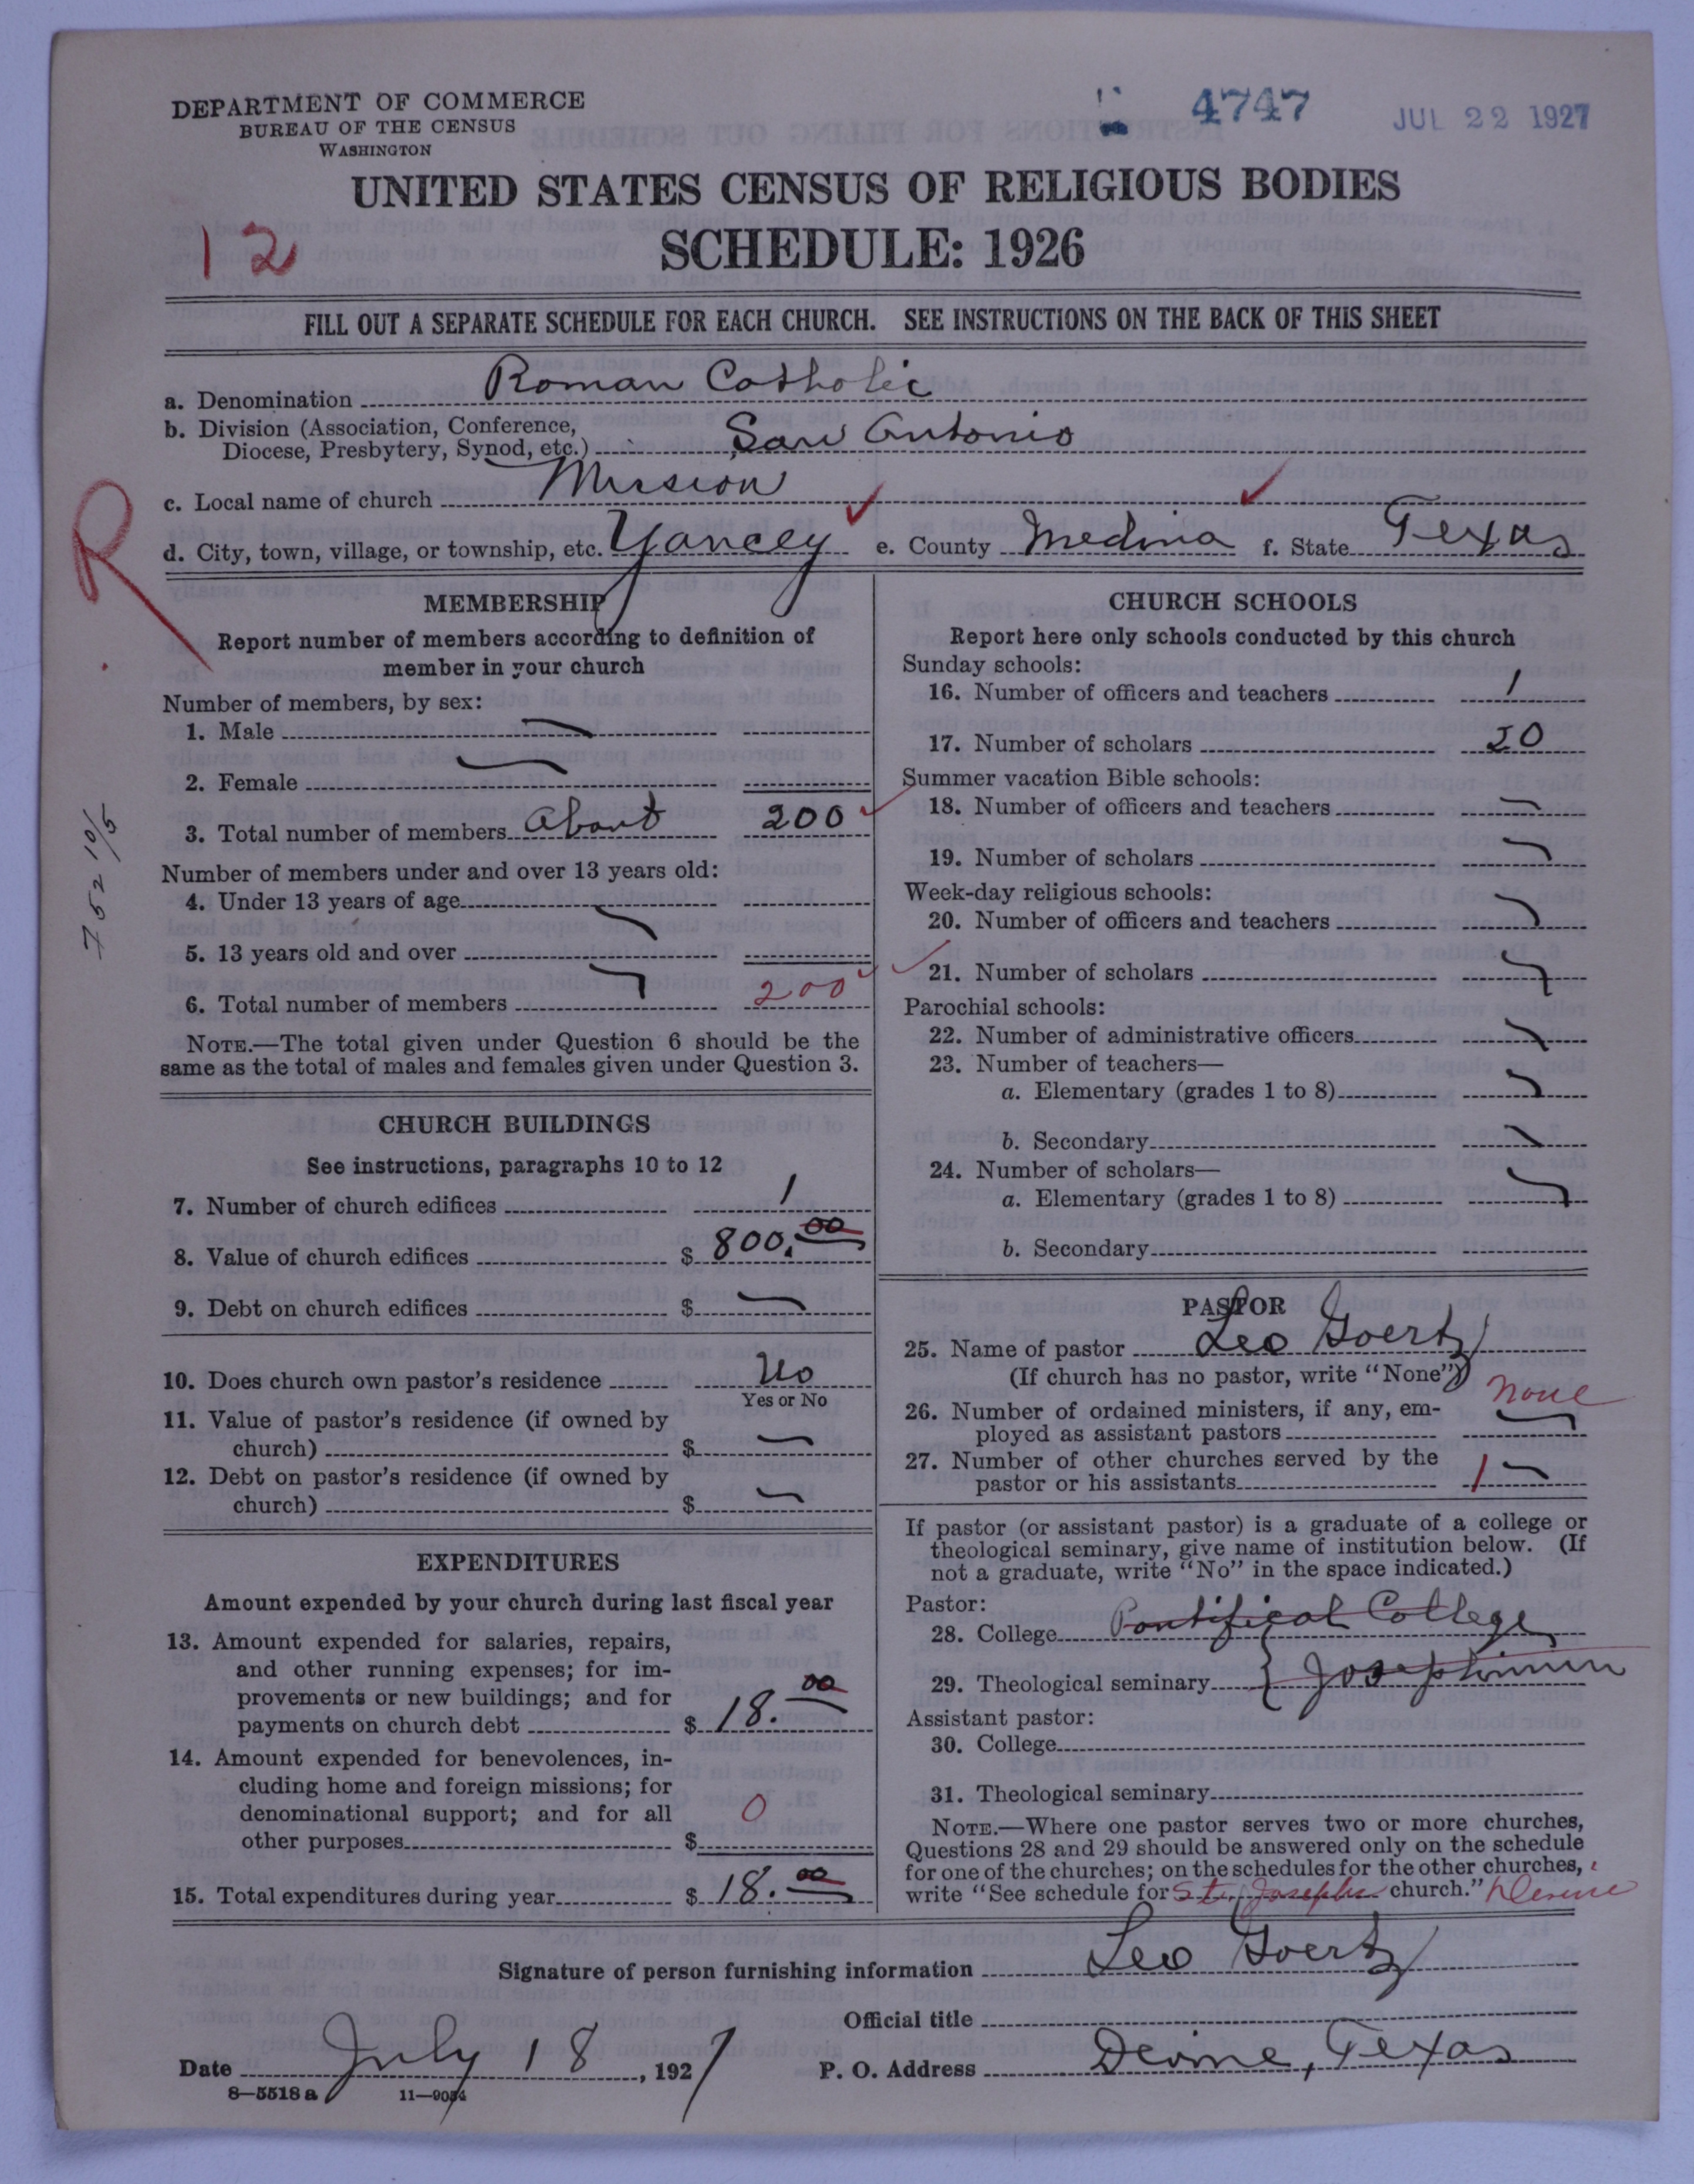 DEPARTMENT OF COMMERCE
BUREAU OF THE CENSUS
WASHINGTON
4747
JUL 22 1927
UNITED STATES CENSUS OF RELIGIOUS BODIES
SCHEDULE: 1926
12
FILL OUT A SEPARATE SCHEDULE FOR EACH CHURCH. SEE INSTRUCTIONS ON THE BACK OF THIS SHEET
a. Denomination Roman Catholic
b. Division (Association, Conference,
Diocese, Presbytery, Synod, etc.) San Antonio
c. Local name of church Mission
d. City, town, village, or township, etc. Yancey e. County Medina f. State Texas
R
752 10/5
MEMBERSHIP
Report number of members according to definition of
member in your church
Number of members, by sex:
1. Male
2. Female
3. Total number of members About 200
Number of members under and over 13 years old:
4. Under 13 years of age
5. 13 years old and over
6. Total number of members 200
NOTE.—The total given under Question 6 should be the
same as the total of males and females given under Question 3.
CHURCH BUILDINGS
See instructions, paragraphs 10 to 12
7. Number of church edifices 1
8. Value of church edifices $ 800.00
9. Debt on church edifices $
10. Does church own pastor's residence No
Yes or No
11. Value of pastor's residence (if owned by
church) $
12. Debt on pastor's residence (if owned by
church) $
EXPENDITURES
Amount expended by your church during last fiscal year
13. Amount expended for salaries, repairs,
and other running expenses; for im-
provements or new buildings; and for
payments on church debt $ 18.00
14. Amount expended for benevolences, in-
cluding home and foreign missions; for
denominational support; and for all
other purposes $ 0
15. Total expenditures during year $ 18.00
CHURCH SCHOOLS
Report here only schools conducted by this church
Sunday schools:
16. Number of officers and teachers 1
17. Number of scholars 20
Summer vacation Bible schools:
18. Number of officers and teachers
19. Number of scholars
Week-day religious schools:
20. Number of officers and teachers
21. Number of scholars
Parochial schools:
22. Number of administrative officers
23. Number of teachers—
a. Elementary (grades 1 to 8)
b. Secondary
24. Number of scholars—
a. Elementary (grades 1 to 8)
b. Secondary
PASTOR
25. Name of pastor Leo Goertz
(If church has no pastor, write "None")
26. Number of ordained ministers, if any, em-
ployed as assistant pastors none
27. Number of other churches served by the
pastor or his assistants 1
If pastor (or assistant pastor) is a graduate of a college or
theological seminary, give name of institution below. (If
not a graduate, write "No" in the space indicated.)
Pastor:
28. College Pontifical College
29. Theological seminary Josephinum
Assistant pastor:
30. College
31. Theological seminary
NOTE.—Where one pastor serves two or more churches,
Questions 28 and 29 should be answered only on the schedule
for one of the churches; on the schedules for the other churches,
write "See schedule for St. Josephs church." Devine
Signature of person furnishing information Leo Goertz
Official title
Date July 18, 1927 P. O. Address Devine, Texas
8—5518 a 11—9034